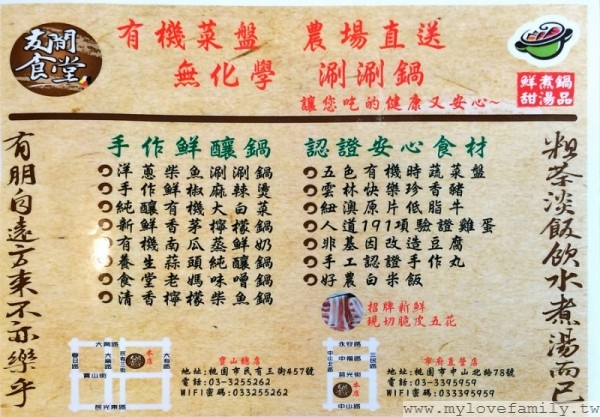 友間食堂
有機菜盤 農場直送
無化學 涮涮鍋
讓您吃的健康又安心~
鮮煮鍋
甜湯品
有朋自遠方來不亦樂乎
手作鮮釀鍋
洋蔥柴魚涮涮鍋
手作鮮椒麻辣燙
純釀有機大白菜
新鮮香茅檸檬鍋
有機南瓜蒸鮮奶
養生蒜頭純釀鍋
食堂老媽味噌鍋
清香檸檬柴魚鍋
認證安心食材
五色有機時蔬菜盤
雲林快樂珍香豬
紐澳原片低脂牛
人道191項驗證雞蛋
非基因改造豆腐
手工認證手作丸
好農白米飯
招牌新鮮
現切脆皮五花
粗茶淡飯飲水煮湯而已
大興路
春日路
大業路
民有三街
本店
大有路
寶山街
民光東路
寶山總店
地址:桃園市民有三街457號
電話:03-3255262
WIFI密碼:033255262
永安路
中山北路
中福街
三民路
民光街
本店
中山路
市府直營店
地址:桃園市中山北路78號
電話:03-3395959
WIFI密碼:033395959
www.mylovefamily.tw